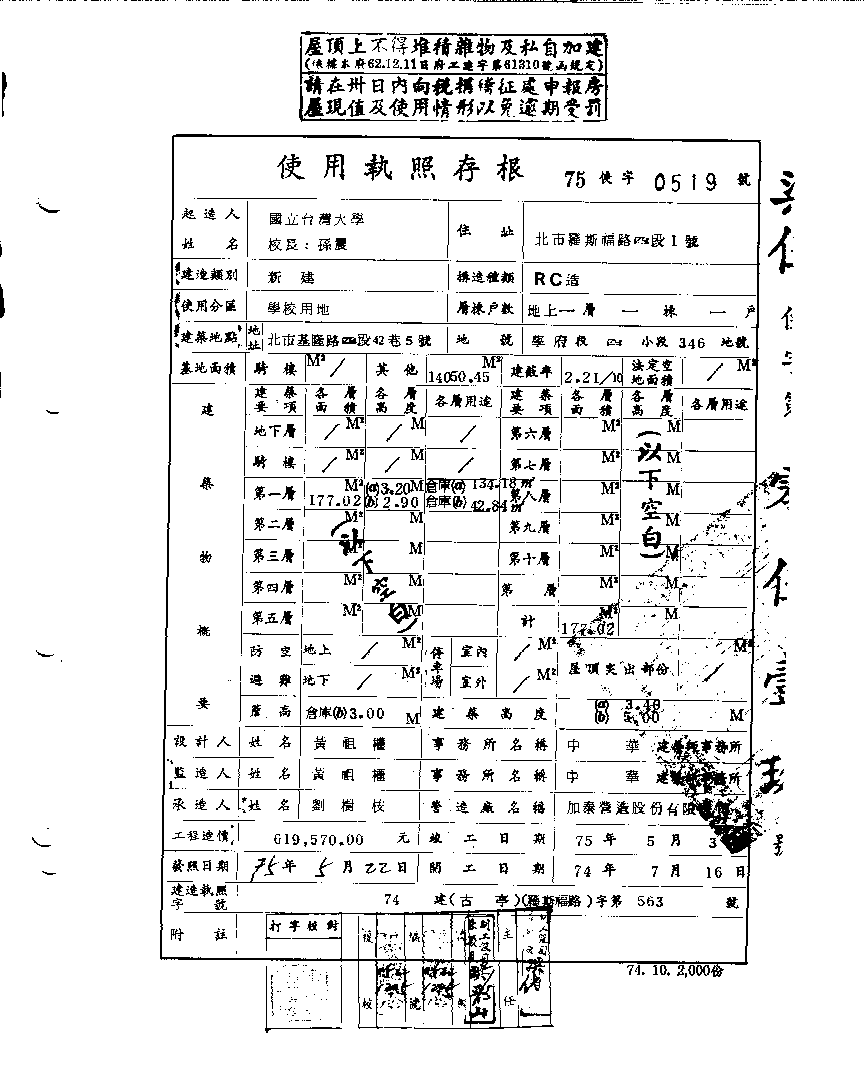 屋頂上不得堆積雜物及私自加建
(依據本府62.12.11日府工建字第61310號函規定)
請在卅日內向稅捐稽征處申報房
屋現值及使用情形以免逾期受罰
使用執照存根 75 使字 0519 號
起造人 姓名 國立台灣大學 校長:孫震 住址 北市羅斯福路四段1號
建造類別 新建 構造種類 RC造
使用分區 學校用地 層棟戶數 地上一層 一棟 一戶
建築地點 地址 北市基隆路四段42巷5號 地號 學府段 四 小段 346 地號
基地面積 騎樓 M² / 其他 14050.45 M² 建蔽率 2.21/10 法定空地面積 / M²
建築物概要
建築要項 各層面積 各層高度 各層用途 建築要項 各層面積 各層高度 各層用途
地下層 / M² / M / 第六層 M² M
騎樓 / M² / M / 第七層 M² M
第一層 177.02 M² (a)3.20 (b)2.90 M 倉庫(a) 134.18㎡ 倉庫(b) 42.84㎡ 第八層 M² M
第二層 M² M 第九層 M² M
第三層 M² M 第十層 M² M
第四層 M² M 第 層 M² M
第五層 M² M 計 177.02 M² M
(以下空白)
(以下空白)
防空避難 地上 / M² 停車場 室內 / M² 屋頂突出部份 / M²
地下 / M² 室外 / M²
簷高 倉庫(b)3.00 M 建築高度 (a) 3.40 (b) 5.00 M
設計人 姓名 黃祖權 事務所名稱 中華建築師事務所
監造人 姓名 黃祖權 事務所名稱 中華建築師事務所
承造人 姓名 劉樹枝 營造廠名稱 加泰營造股份有限
工程造價 619,570.00 元 竣工日期 75 年 5 月 3
發照日期 75年 5月22日 開工日期 74 年 7 月 16 日
建造執照字號 74 建(古亭)(羅斯福路)字第 563 號
附註 打字校對
複校 主任
74.10.2,000份